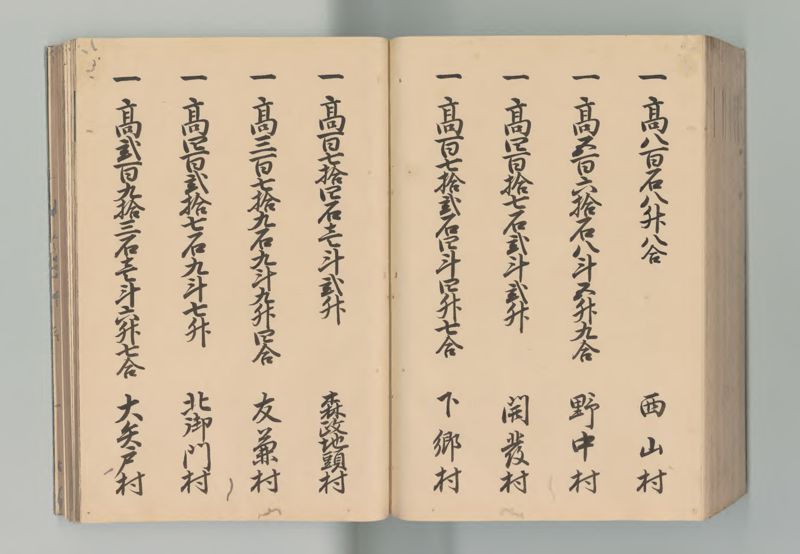 一 高八百石八升八合 西山村
一 高五百六拾石八斗五升九合 野中村
一 高四百拾七石弐斗弐升 開発村
一 高百七拾弐石四斗四升七合 下郷村
一 高百七拾四石壱斗弐升 森政地頭村
一 高三百七拾九石九斗九升四合 友兼村
一 高四百弐拾七石九斗七升 北御門村
一 高弐百九拾三石壱斗六升七合 大矢戸村